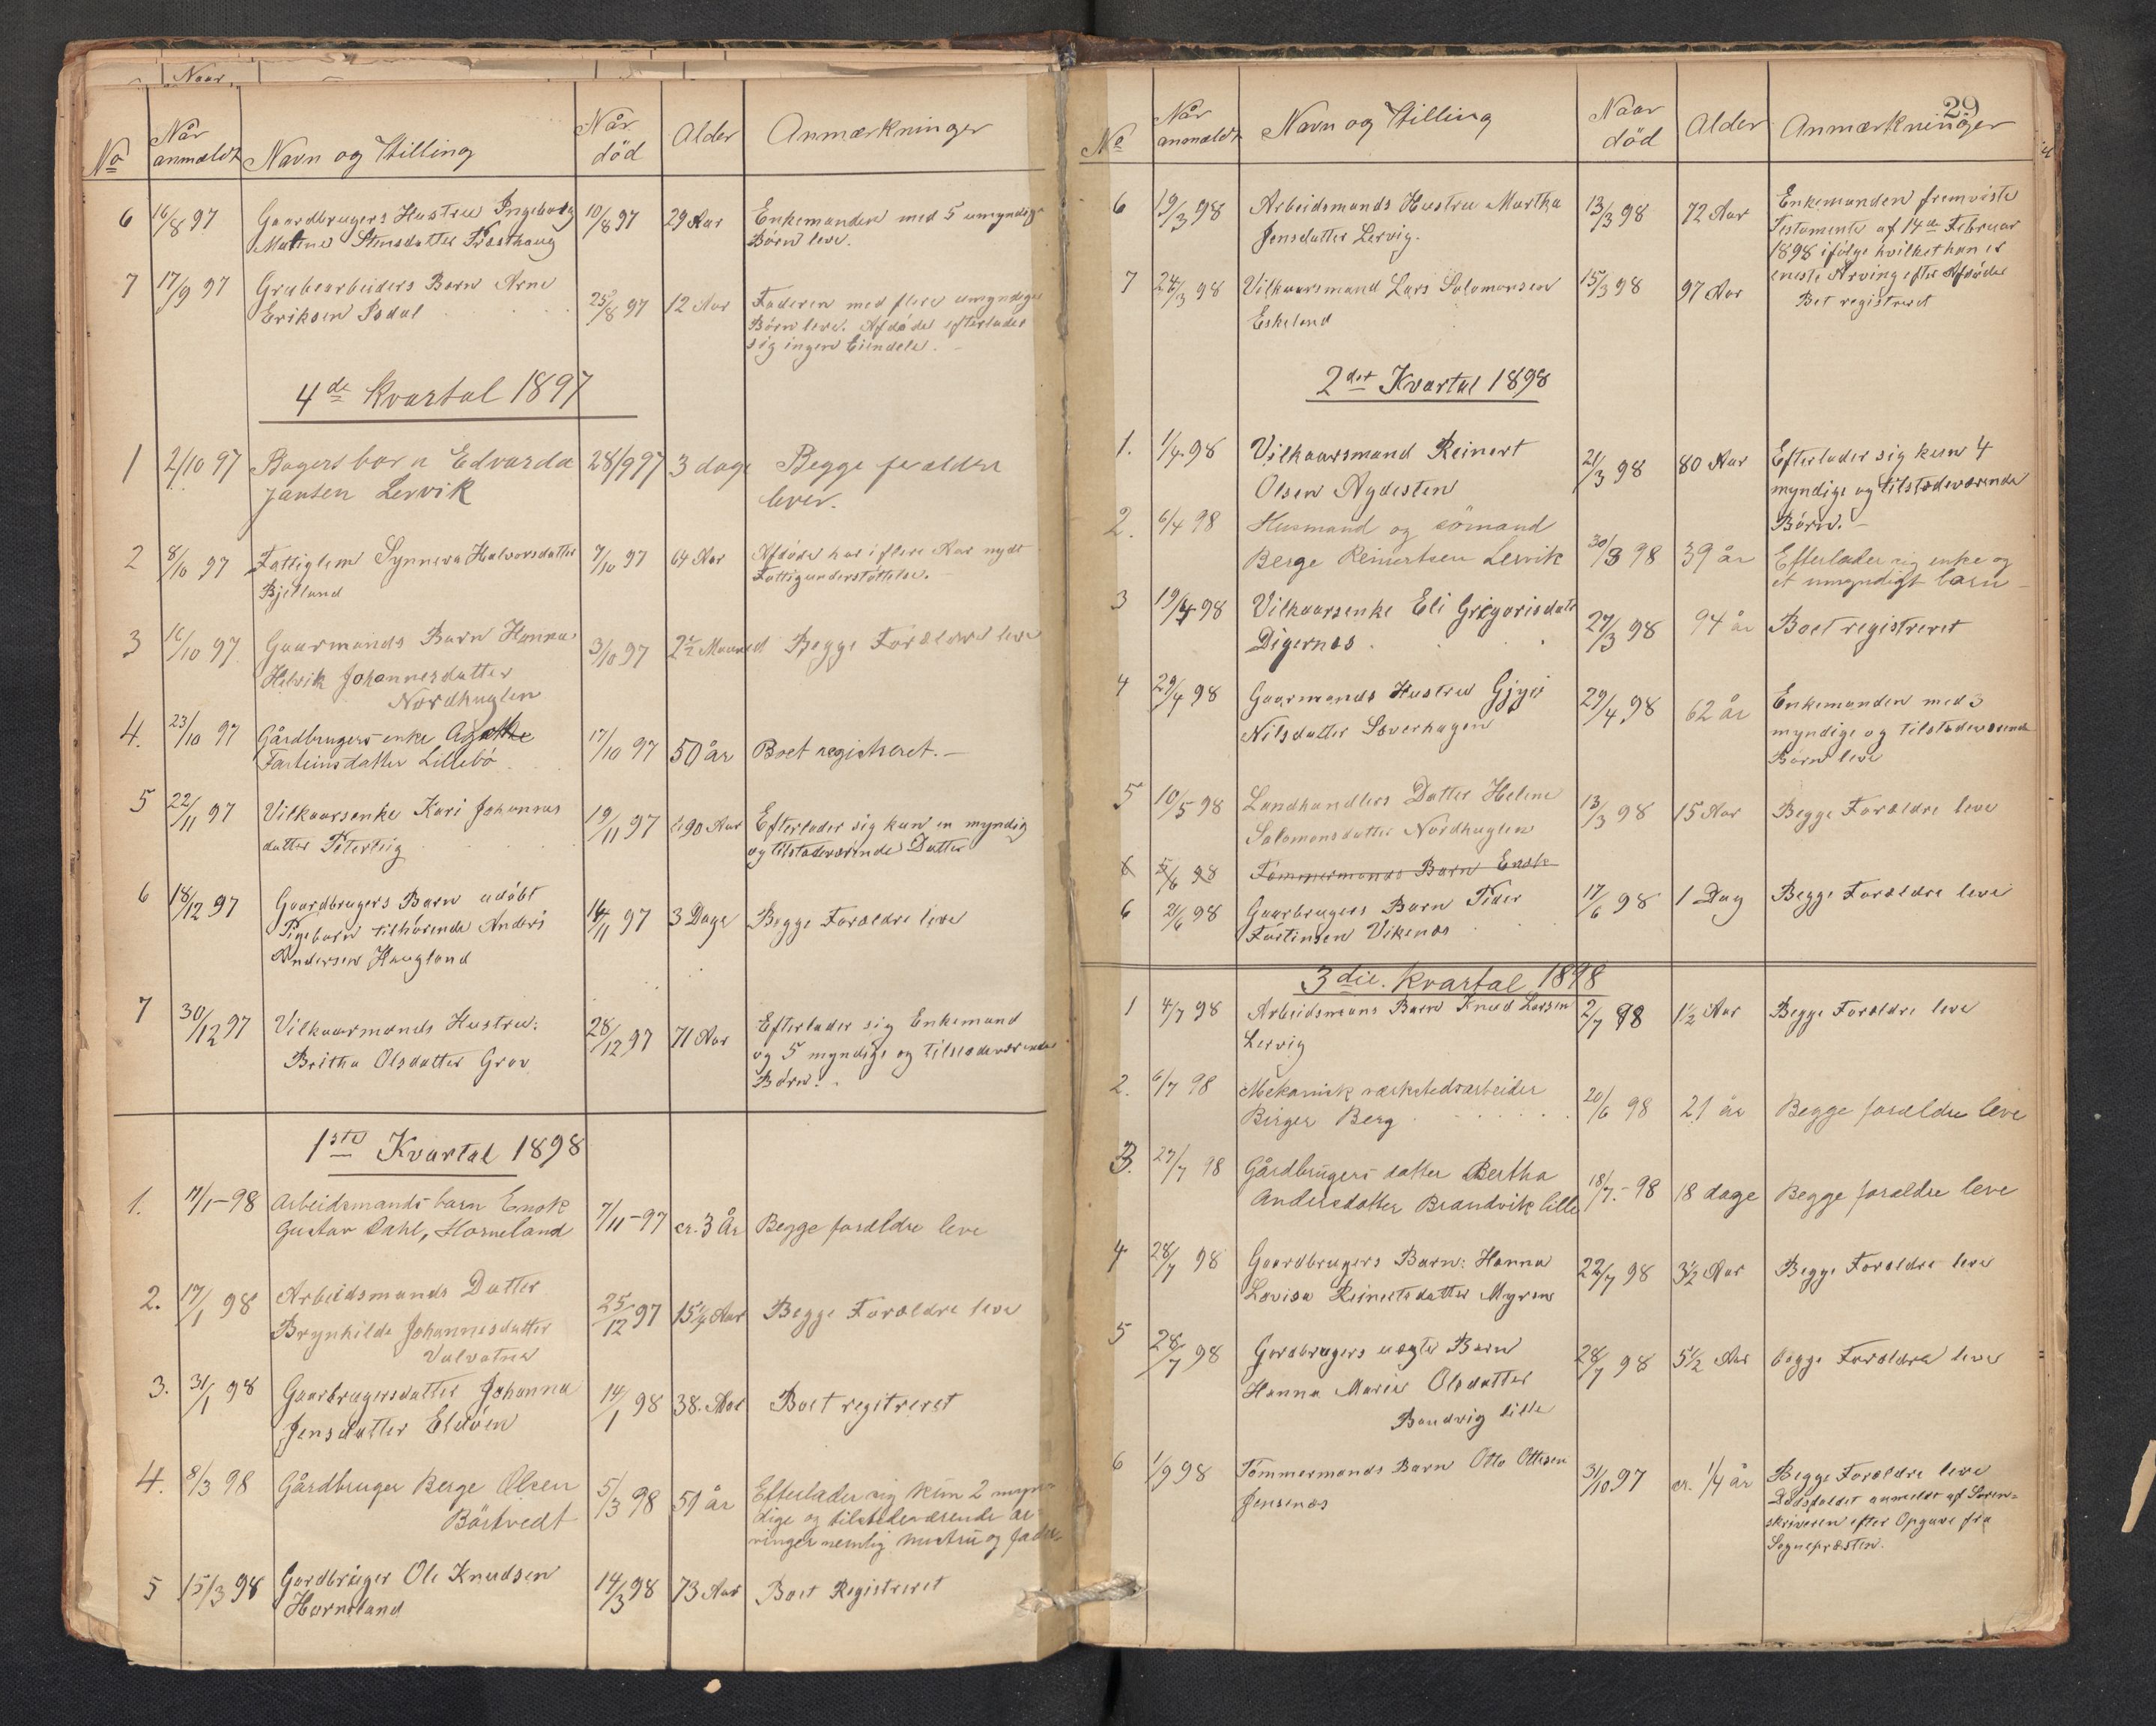 Naar
No
Når anmældt
Navn og Stilling
Når död
Alder
Anmærkninger
6 16/8 97 Gaardbrugers Hustru Ingeborg 10/8 97 29 Aar Enkemanden med 5 umyndige
Børn leve.
7 17/9 97 Grubearbeiders Barn Arne
Eriksen Isdal 25/8 97 12 Aar Faderen med flere umyndige
Børn leve. Afdøde efterlader
sig ingen Eiendele.
4de Kvartal 1897
1 2/10 97 Bagersbarn Edvarda 28/9 97 3 dage Begge forældre
Jansen Lervik lever.
2 8/10 97 Fattiglem Synneva Halvorsdatter 7/10 97 64 Aar Afdøde har i flere Aar nydt
Bjelland Fattigunderstøttelse.
3 16/10 97 Gaarmands Barn Hanna 3/10 97 2½ Maaned Begge Forældre leve
Helvik Johannesdatter
Nordhuglen
4. 23/10 97 Gårdbrugers enke Agathe 17/10 97 50 år Boet registreret.
Farteinsdatter Lillebø
5 22/11 97 Vilkaarsenke Kari Johannes 19/11 97 90 Aar Efterlader sig kun en myndig
datter Peterteig og tilstedeværende Datter
6 18/12 97 Gaardbrugers Barn udøbt 14/11 97 3 Dage Begge Forældre leve
Pigebarn tilhørende Anders
Andersen Haugland
7 30/12 97 Vilkaarmands Hustru: 28/12 97 71 Aar Efterlader sig Enkemand
Britha Olsdatter Grov og 5 myndige og tilstedeværende
Børn.
1ste Kvartal 1898
1. 7/1-98 Arbeidsmands barn Enok 7/11-97 cr. 3 År Begge forældre leve
Gustav Dahl, Horneland
2. 17/1 98 Arbeidsmands Datter 25/12 97 15¼ Aar Begge Forældre leve
Brynhilde Johannesdatter
Valvatne
3. 31/1 98 Gaarbrugersdatter Johanna 14/1 98 38 Aar Boet regitreret
Jensdatter Eldøen
4. 8/3 98 Gårdbruger Berge Olsen 5/3 98 51 år Efterlader sig kun 2 myn
Børtvedt dige og tilstedeværende ar
vinger nemlig hustru og fader
5 15/3 98 Gordbruger Ole Knudsen 14/3 98 73 Aar Boet Registreret
Horneland
29
No
Når anmældt
Navn og Stilling
Naar död
Alder
Anmærkninger
6 19/3 98 Arbeidsmands Hustru Martha 13/3 98 72 Aar Enkemanden fremviste
Jensdatter Lervig. Testamente af 14de Februar
1898 ifølge hvilket han er
eneste Arving efter Afdøde
7 24/3 98 Vilkaarsmand Lars Salomonsen 15/3 98 97 Aar Bet registreret
Eskeland
2det Kvartal 1898
1. 1/4 98 Vilkaarsmand Reinert 21/3 98 80 Aar Efterlader sig kun 4
Olsen Nydesten myndige og tilstedeværende
Børn.
2. 6/4 98 Husmand og sömand
Berge Reinertsen Lervik 30/3 98 39 år Efterlader sig enke og
et umyndigt barn
3 19/4 98 Vilkaarsenke Eli Grigorisdatt 27/3 98 94 år Boet registreret
Digernes
4 29/4 98 Gaarmands Hustru Gjyri 29/4 98 62 år Enkemanden med 3
Nilsdatter Søverhagen myndige og tilstedeværende
Børn leve
5 10/5 98 Landhandlers Datter Helene 13/3 98 15 Aar Begge Forældre leve
Salomonsdatter Nordhuglen
6 5/6 98 Tømmermands Barn Enok
6 21/6 98 Gaarbrugers Barn Peder 17/6 98 1 Dag Begge Forældre leve
Fartinsen Vikenes
3die Kvartal 1898
1 4/7 98 Arbeidsmans Barn Knud Larsen 2/7 98 1½ Aar Begge Forældre leve
Lervig
2. 6/7 98 Mekanisk værkstedsarbeider
Birger Berg 20/6 98 21 år Begge forældre leve
3. 27/7 98 Gårdbrugers datter Bertha
Andersdatter Brandvik lille 18/7-98 18 dage Begge forældre leve
4 28/7 98 Gaardbrugers Barn: Hanna 22/7 98 3½ Aar Begge Forældre leve
Lovisa Reinertsdatter Myren
5 28/7 98 Gordbrugers uægte Barn 28/7 98 5½ Aar begge Forældre leve
Hanna Marie Olsdatter
Bandvig lille
6 1/9 98 Tømmermands Barn Otto Ottesen 31/10 97 cr. 1/4 år Begge Forældre leve
Jensenes Dødsfaldet anmeldt af Soren-
skriveren efter Opgave fra
Sognepræsten.